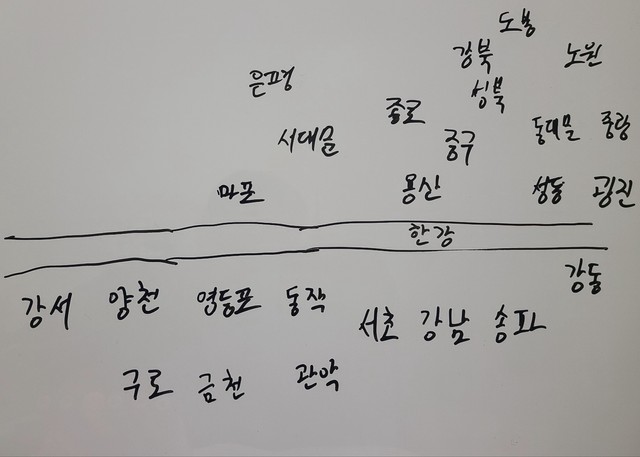 도봉
강북 노원
은평 성북
종로
서대문 중구 동대문 중랑
마포 용산 성동 광진
한강
강동
강서 양천 영등포 동작
서초 강남 송파
구로 금천 관악